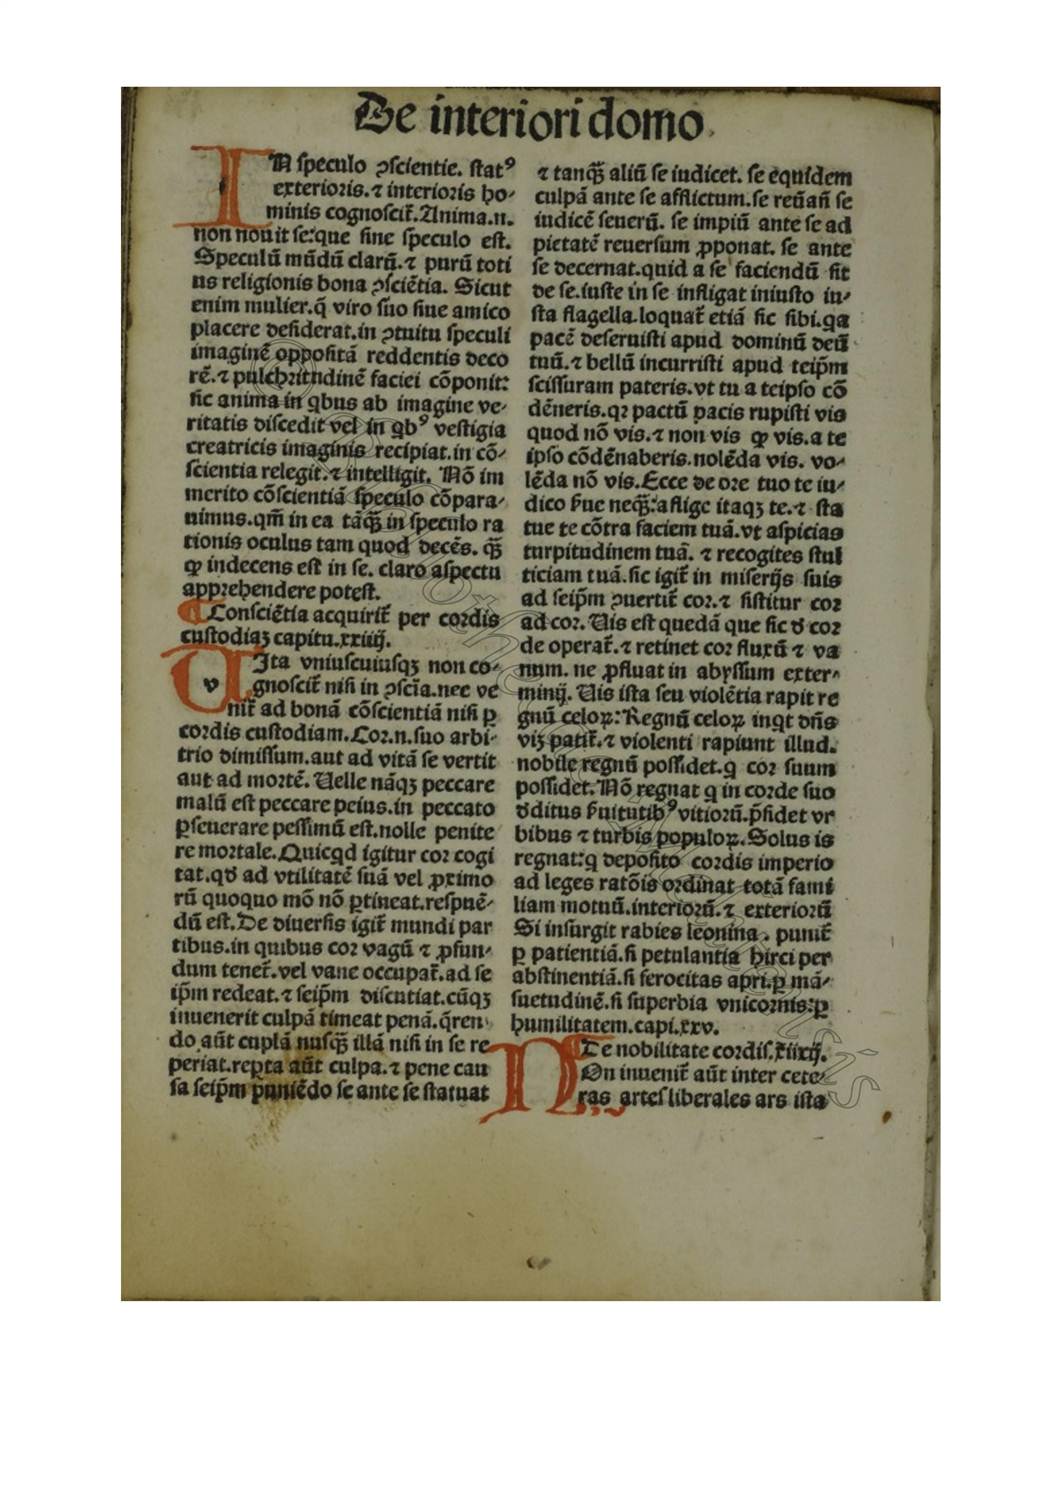 De interiori domo
IN speculo ↄscientie. statꝰ
exterioris.⁊ interioris ho-
minis cognoscit̃.Anima.n.
non nouit se:que sine speculo est.
Speculũ mũdũ clarũ.⁊ purũ toti
us religionis bona ↄsciẽtia. Sicut
enim mulier.q̃ viro suo siue amico
placere desiderat.in ↄtuitu speculi
imaginẽ oppositã reddentis deco
rẽ.⁊ pulchritudinẽ faciei cõponit:
sic anima in qbus ab imagine ve-
ritatis discedit vel in qbꝰ vestigia
creatricis imaginis recipiat.in cõ-
scientia relegit.⁊ intelligit. Nõ im
merito cõscientiã speculo cõpara-
uimus.qm̃ in ea tãq̃ in speculo ra
tionis oculus tam quod decẽs. q̃
ꝙ indecens est in se. claro aspectu
apprehendere potest.
¶Consciẽtia acquirit̃ per cordis
custodiaꝫ capitu.xxiiij.
vUIta vniuscuiusqꝫ non co-
gnoscit̃ nisi in ↄscĩa.nec ve
nit̃ ad bonã cõscientiã nisi ꝑ
cordis custodiam.Cor.n.suo arbi-
trio dimissum.aut ad vitã se vertit
aut ad mortẽ. Uelle nãqꝫ peccare
malũ est peccare peius.in peccato
ꝑseuerare pessimũ est.nolle penite
re mortale.Quicqd igitur cor cogi
tat.qđ ad vtilitatẽ suã vel ꝓximo
rũ quoquo mõ nõ ꝑtineat.respuẽ-
dũ est.De diuersis igit̃ mundi par
tibus.in quibus cor vagũ ⁊ ꝓfun-
dum tenet̃.vel vane occupat̃.ad se
ip̃m redeat.⁊ seip̃m discutiat.cũqꝫ
inuenerit culpã timeat penã.q̃ren
do aũt cuplã nusq̃ illã nisi in se re
periat.repta aũt culpa.⁊ pene cau
sa seip̃m puniẽdo se ante se statuat
⁊ tanq̃ aliũ se iudicet. se equidem
culpã ante se afflictum.se reũ añ se
iudicẽ seuerũ. se impiũ ante se ad
pietatẽ reuersum ꝓponat. se ante
se decernat.quid a se faciendũ sit
de se.iuste in se infligat iniusto iu-
sta flagella.loquat̃ etiã sic sibi.qa
pacẽ deseruisti apud dominũ deũ
tuũ.⁊ bellũ incurristi apud teip̃m
scissuram pateris.vt tu a teipso cõ
dẽneris.qꝛ pactũ pacis rupisti vis
quod nõ vis.⁊ non vis ꝙ vis.a te
ipso cõdẽnaberis.nolẽda vis. vo-
lẽda nõ vis.Ecce de ore tuo te iu-
dico ẜue neq̃:aflige itaqꝫ te.⁊ sta
tue te cõtra faciem tuã.vt aspicias
turpitudinem tuã. ⁊ recogites stul
ticiam tuã.sic igit̃ in miserijs suis
ad seip̃m ↄuertit̃ cor.⁊ sistitur cor
ad cor. Uis est quedã que sic đ cor
de operat̃.⁊ retinet cor fluxũ ⁊ va
num. ne ꝓfluat in abyssium exter-
minij. Uis ista seu violẽtia rapit re
gnũ celoꝝ:Regnũ celoꝝ inqt dñs
viꝫ patit̃.⁊ violenti rapiunt illud.
nobile regnũ possidet.q cor suum
possidet. Nõ regnat q in corde suo
đditus ẜuitutibꝰ vitiorũ.p̃sidet vr
bibus ⁊ turbis populoꝝ.Solus is
regnat:q deposito cordis imperio
ad leges ratõis ordinat totã fami
liam motuũ.interiorũ.⁊ exteriorũ
Si insurgit rabies leonina. punit̃
ꝑ patientiã.si petulantia hirci per
abstinentiã.si ferocitas apri.ꝑ mã-
suetudinẽ.si superbia vnicornis:ꝑ
humilitatem.capi.xxv.
¶De nobilitate cordis.
NOn inuenit̃ aũt inter cete-
ras artes liberales ars ista